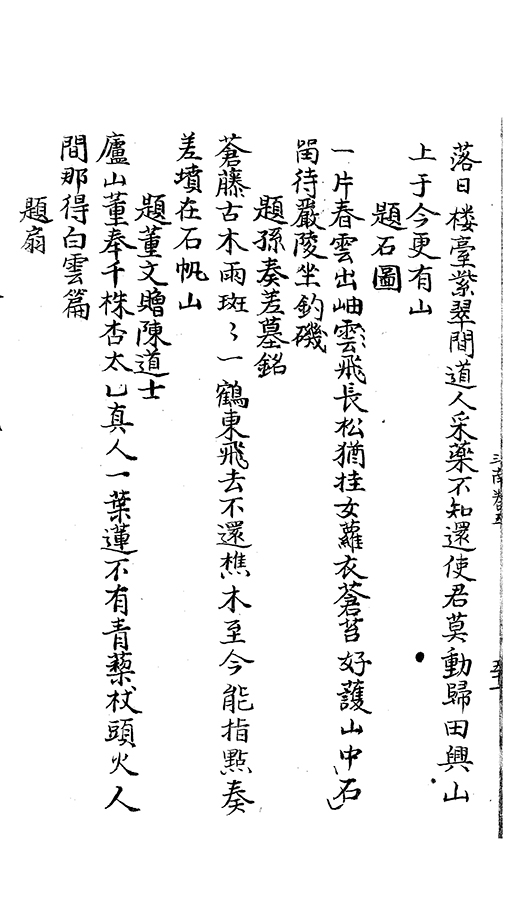 落日楼臺紫翠間道人采藥不知還使君莫動歸田興山
上于今更有山
題石圖
一片春雲出岫雲飛長松猶挂女蘿衣蒼苔好護山中石
留待嚴陵坐釣磯
題孫奏差墓銘
蒼藤古木雨斑〻一鶴東飛去不還樵木至今能指點奏
差墳在石帆山
題董文贈陳道士
廬山董奉千株杏太乚真人一葉蓮不有青藜杖頭火人
間那得白雲篇
題扇